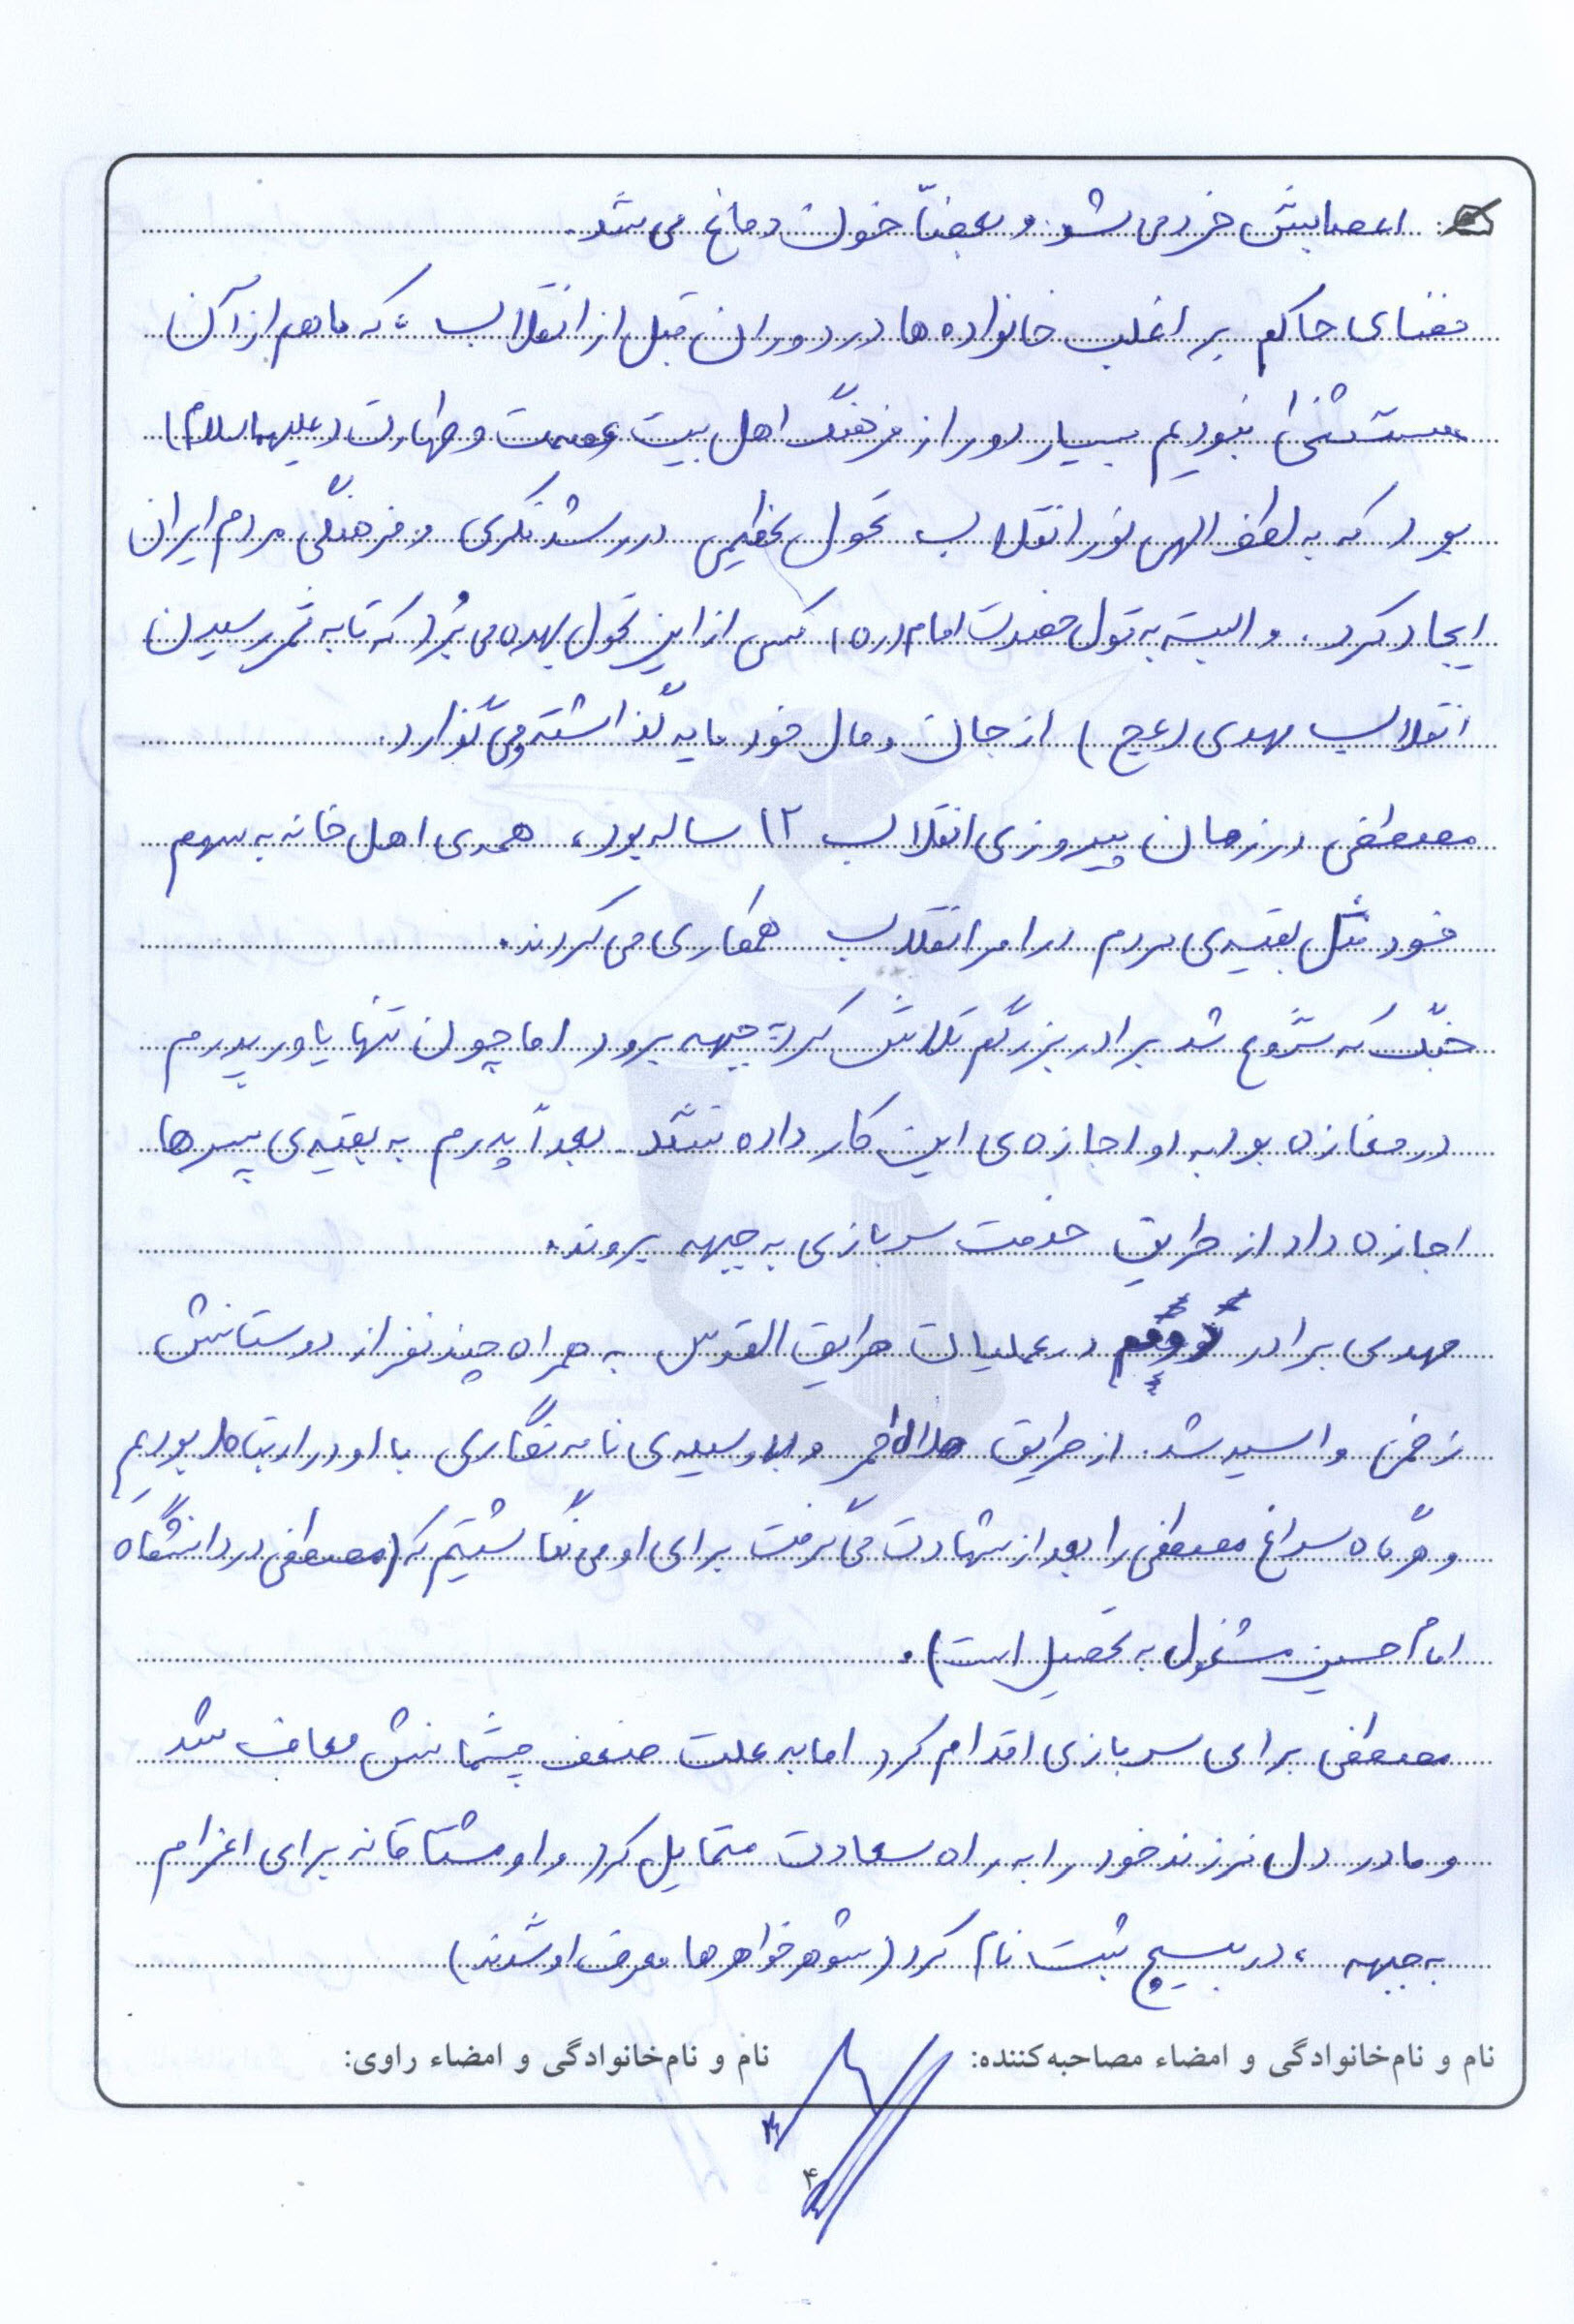 اعصابش خرد می شد و بعضاً خون دماغ می شد.
فضای حاکم بر اغلب خانواده ها در دوران قبل از انقلاب ، که ما هم از آن
مستثنی نبودیم بسیار دور از فرهنگ اهل بیت عصمت و طهارت (علیهم السلام)
بود که به لطف الهی نور انقلاب تحول عظیمی در رشد فکری و فرهنگی مردم ایران
ایجاد کرد . و البته به قول حضرت امام (ره) ، کسی از این تحول بهره می بُرد که تا به ثمر رسیدن
انقلاب مهدی (عج) از جان و مال خود مایه گذاشته و می گذارد.
مصطفی در زمان پیروزی انقلاب ۱۲ ساله بود، همه ی اهل خانه به سهم
خود مثل بقیه ی مردم در امر انقلاب همکاری می کردند.
جنگ که شروع شد برادر بزرگم تلاش کرد به جبهه برود اما چون تنها یاور پدرم
در مغازه بود به او اجازه ی این کار داده نشد. بعداً پدرم به بقیه ی پسرها
اجازه داد از طریق خدمت سربازی به جبهه بروند.
مهدی برادر در عملیات طریق القدس به همراه چند نفر از دوستانش
زخمی و اسیر شد. از طریق هلال احمر و به وسیله ی نامه نگاری با او در ارتباط بودیم
و هرگاه سراغ مصطفی را بعد از شهادت می گرفت برای او می نگاشتیم که (مصطفی در دانشگاه
امام حسین مشغول به تحصیل است).
مصطفی برای سربازی اقدام کرد اما به علت ضعف چشمانش معاف شد
و مادر دل فرزند خود را به راه سعادت متمایل کرد و او مشتاقانه برای اعزام
به جبهه ، در بسیج ثبت نام کرد (شوهر خواهرها معرف او شدند)
نام و نام‌خانوادگی و امضاء مصاحبه‌کننده: نام و نام‌خانوادگی و امضاء راوی:
۴